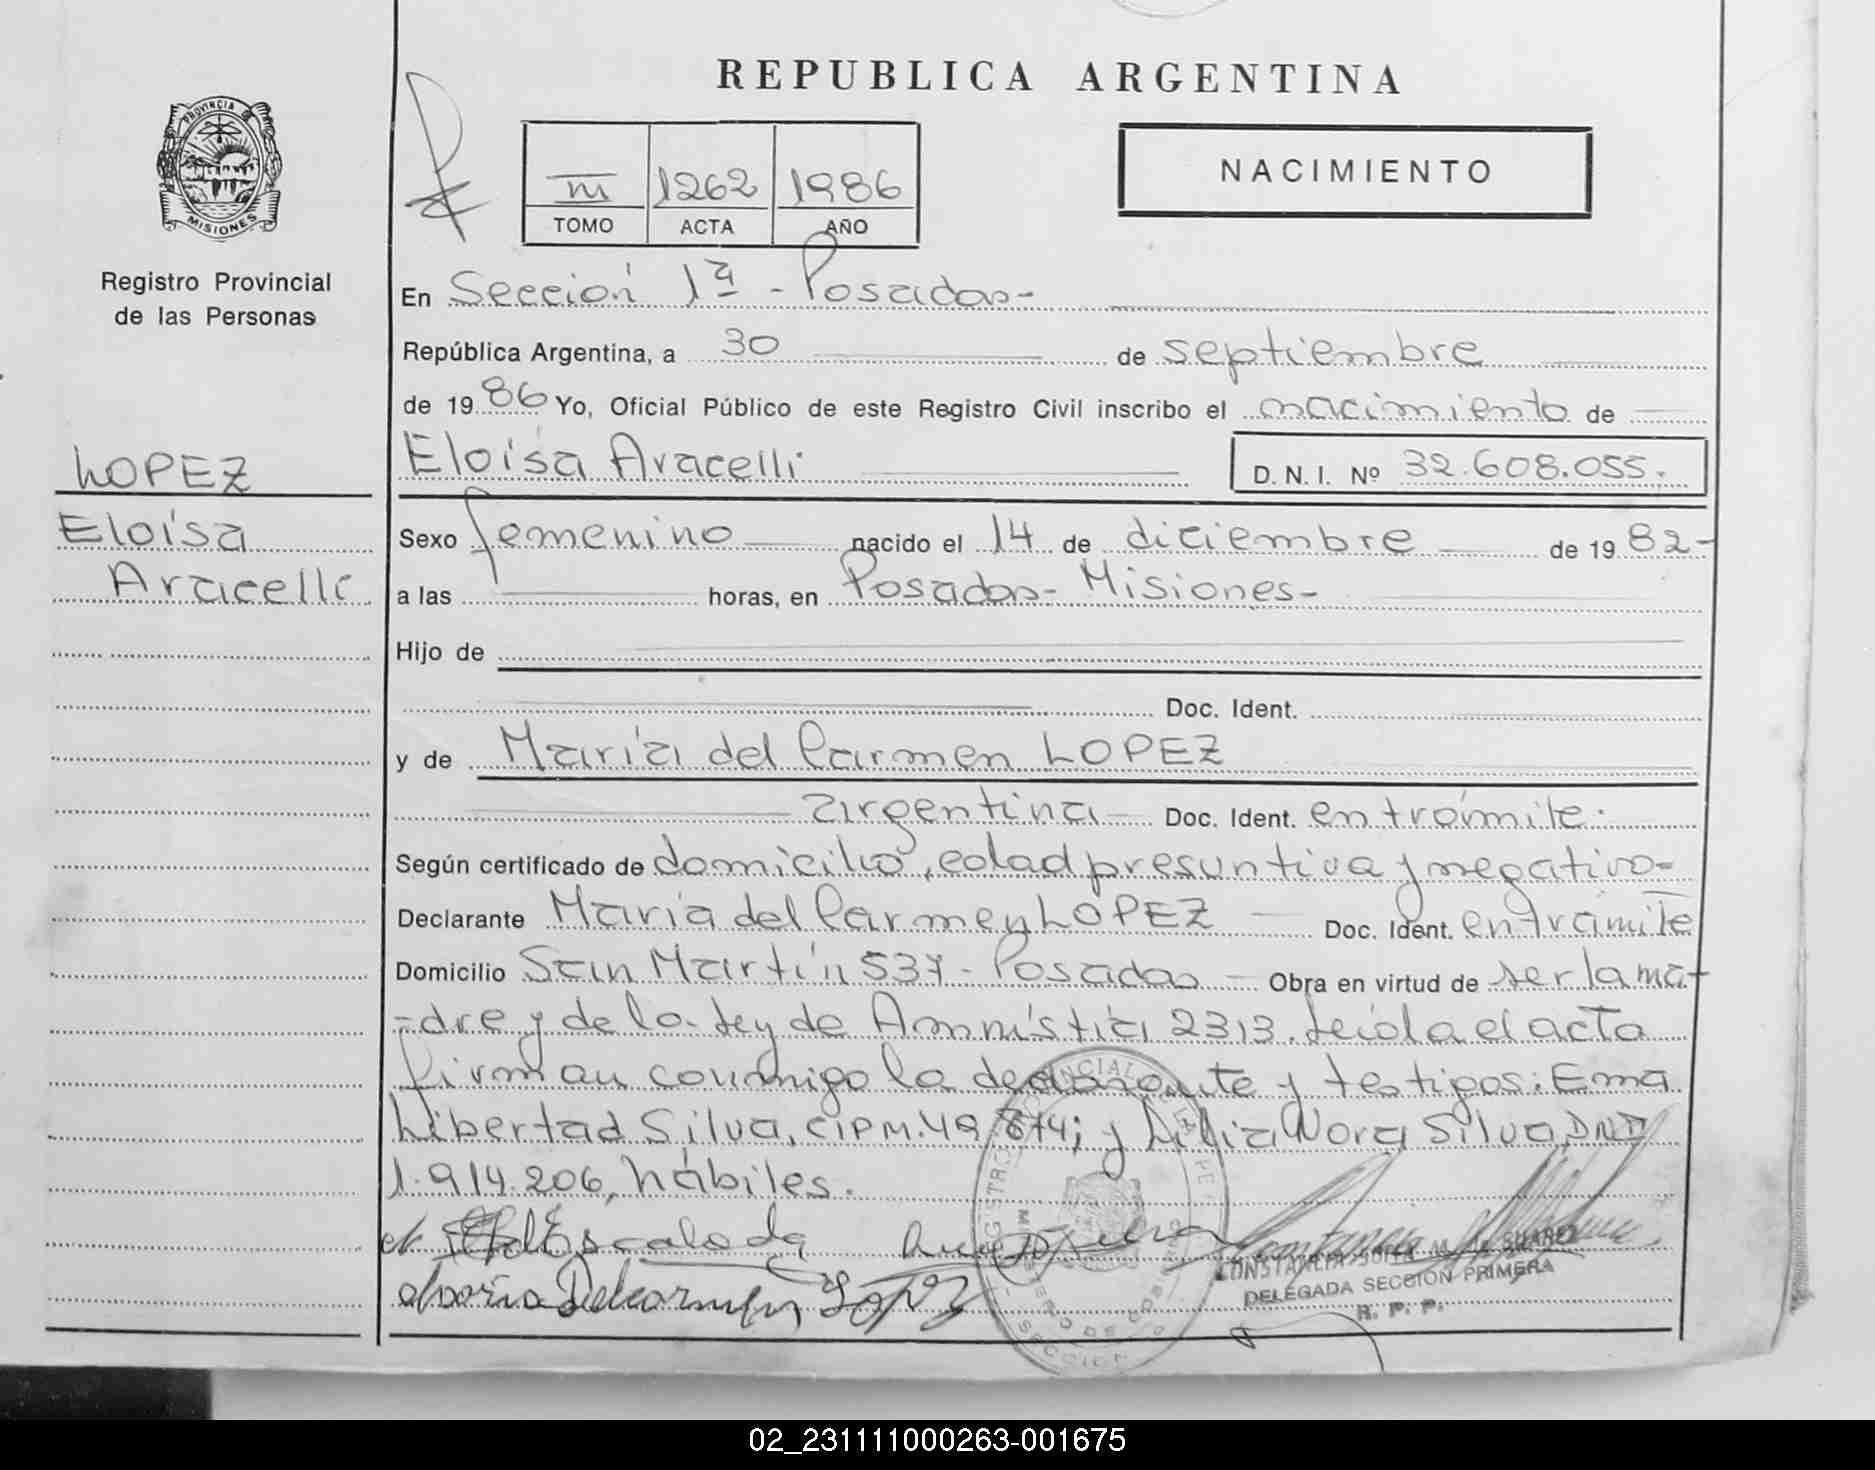 REPUBLICA ARGENTINA
PROVINCIA DE
MISIONES
Registro Provincial
de las Personas
III 1262 1986
TOMO ACTA AÑO
NACIMIENTO
En Sección 1ª - Posadas-
República Argentina, a 30 de septiembre
de 1986 Yo, Oficial Público de este Registro Civil inscribo el nacimiento de
LOPEZ
Eloísa Aracelli
Eloísa Aracelli D.N.I. Nº 32.608.055.
Sexo femenino nacido el 14 de diciembre de 1982-
a las horas, en Posadas- Misiones-
Hijo de
Doc. Ident.
y de María del Carmen LOPEZ
argentina Doc. Ident. en trámite.
Según certificado de domicilio, edad presuntiva y negativo-
Declarante María del Carmen LOPEZ Doc. Ident. en trámite
Domicilio San Martín 537- Posadas Obra en virtud de ser la ma-
-dre y de la Ley de Amnistía 2313. Leída el acta
firman conmigo la declarante y testigos: Ema
Libertad Silva, CIPM. 49.874; y Lilia Nora Silva DNI
1.914.206, hábiles.
María Del carmen Lopez
DELEGADA SECCION PRIMERA
R. P. P.
02_231111000263-001675